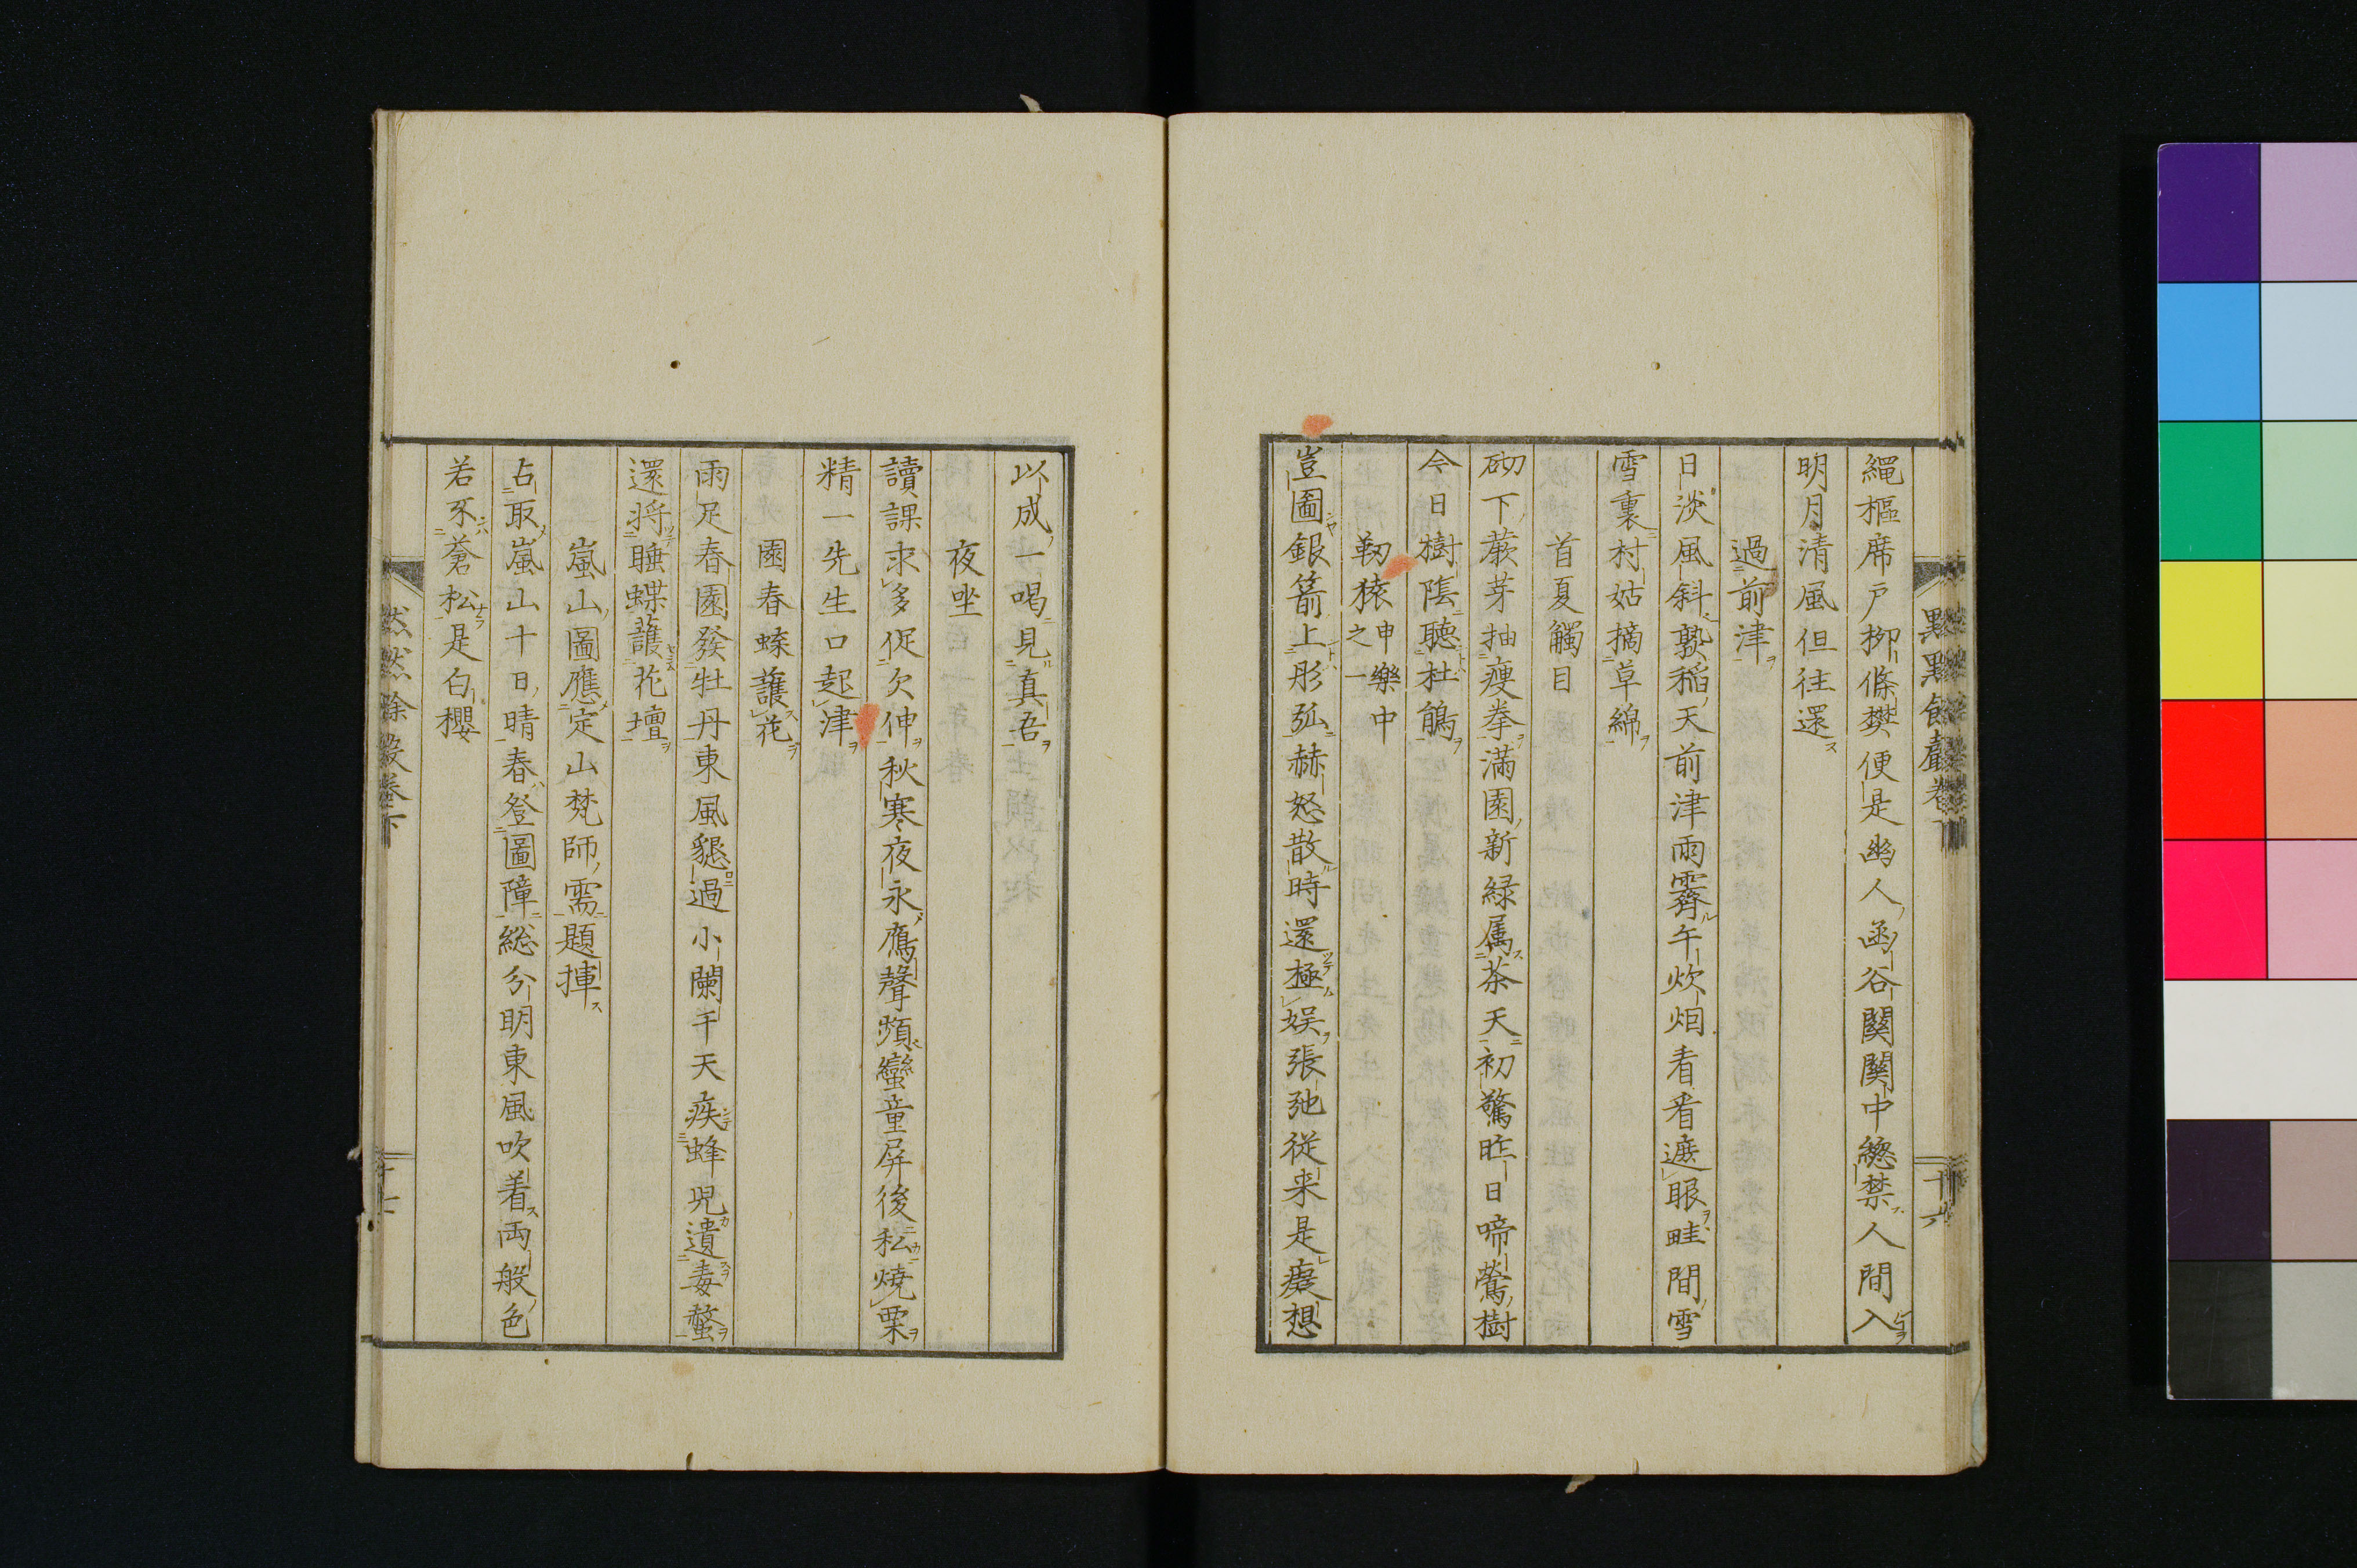 繩樞席戸柳條樊便是幽人函谷關關中總禁人間入
明月清風但往還
過前津
日淡風斜䅀稻天前津雨霽午炊烟看看遮眼畦間雪
雪裏村姑摘草綿
首夏觸目
砌下蕨芽抽瘦拳滿園新緑属茶天初驚昨日啼鶯樹
今日樹陰聽杜鵑
靭猿申樂中之一
豈圖銀箭上彤弧赫怒散時還極娯張弛従来是癡想
以成一喝見真吾
夜坐
讀課求多促欠伸秋寒夜永鴈聲頻蠻童屏後私燒栗
精一先生口起津
園春蝶護花
雨足春園發牡丹東風懇過小闌干天疾蜂児遺毒螫
還将睡蝶護花壇
嵐山圖應定山梵師需題揮
占取嵐山十日晴春登圖障総分明東風吹着両般色
若不蒼松是白櫻